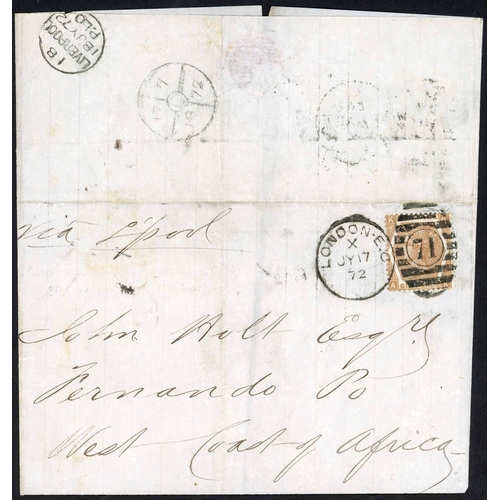 1 B
LIVERPOOL
18 JY 72
P.L.O
17 7 72
via L'pool
LONDON·E.C
X
JY 17
72
71
A
John Holt Esqre
Fernando Po
West Coast of Africa